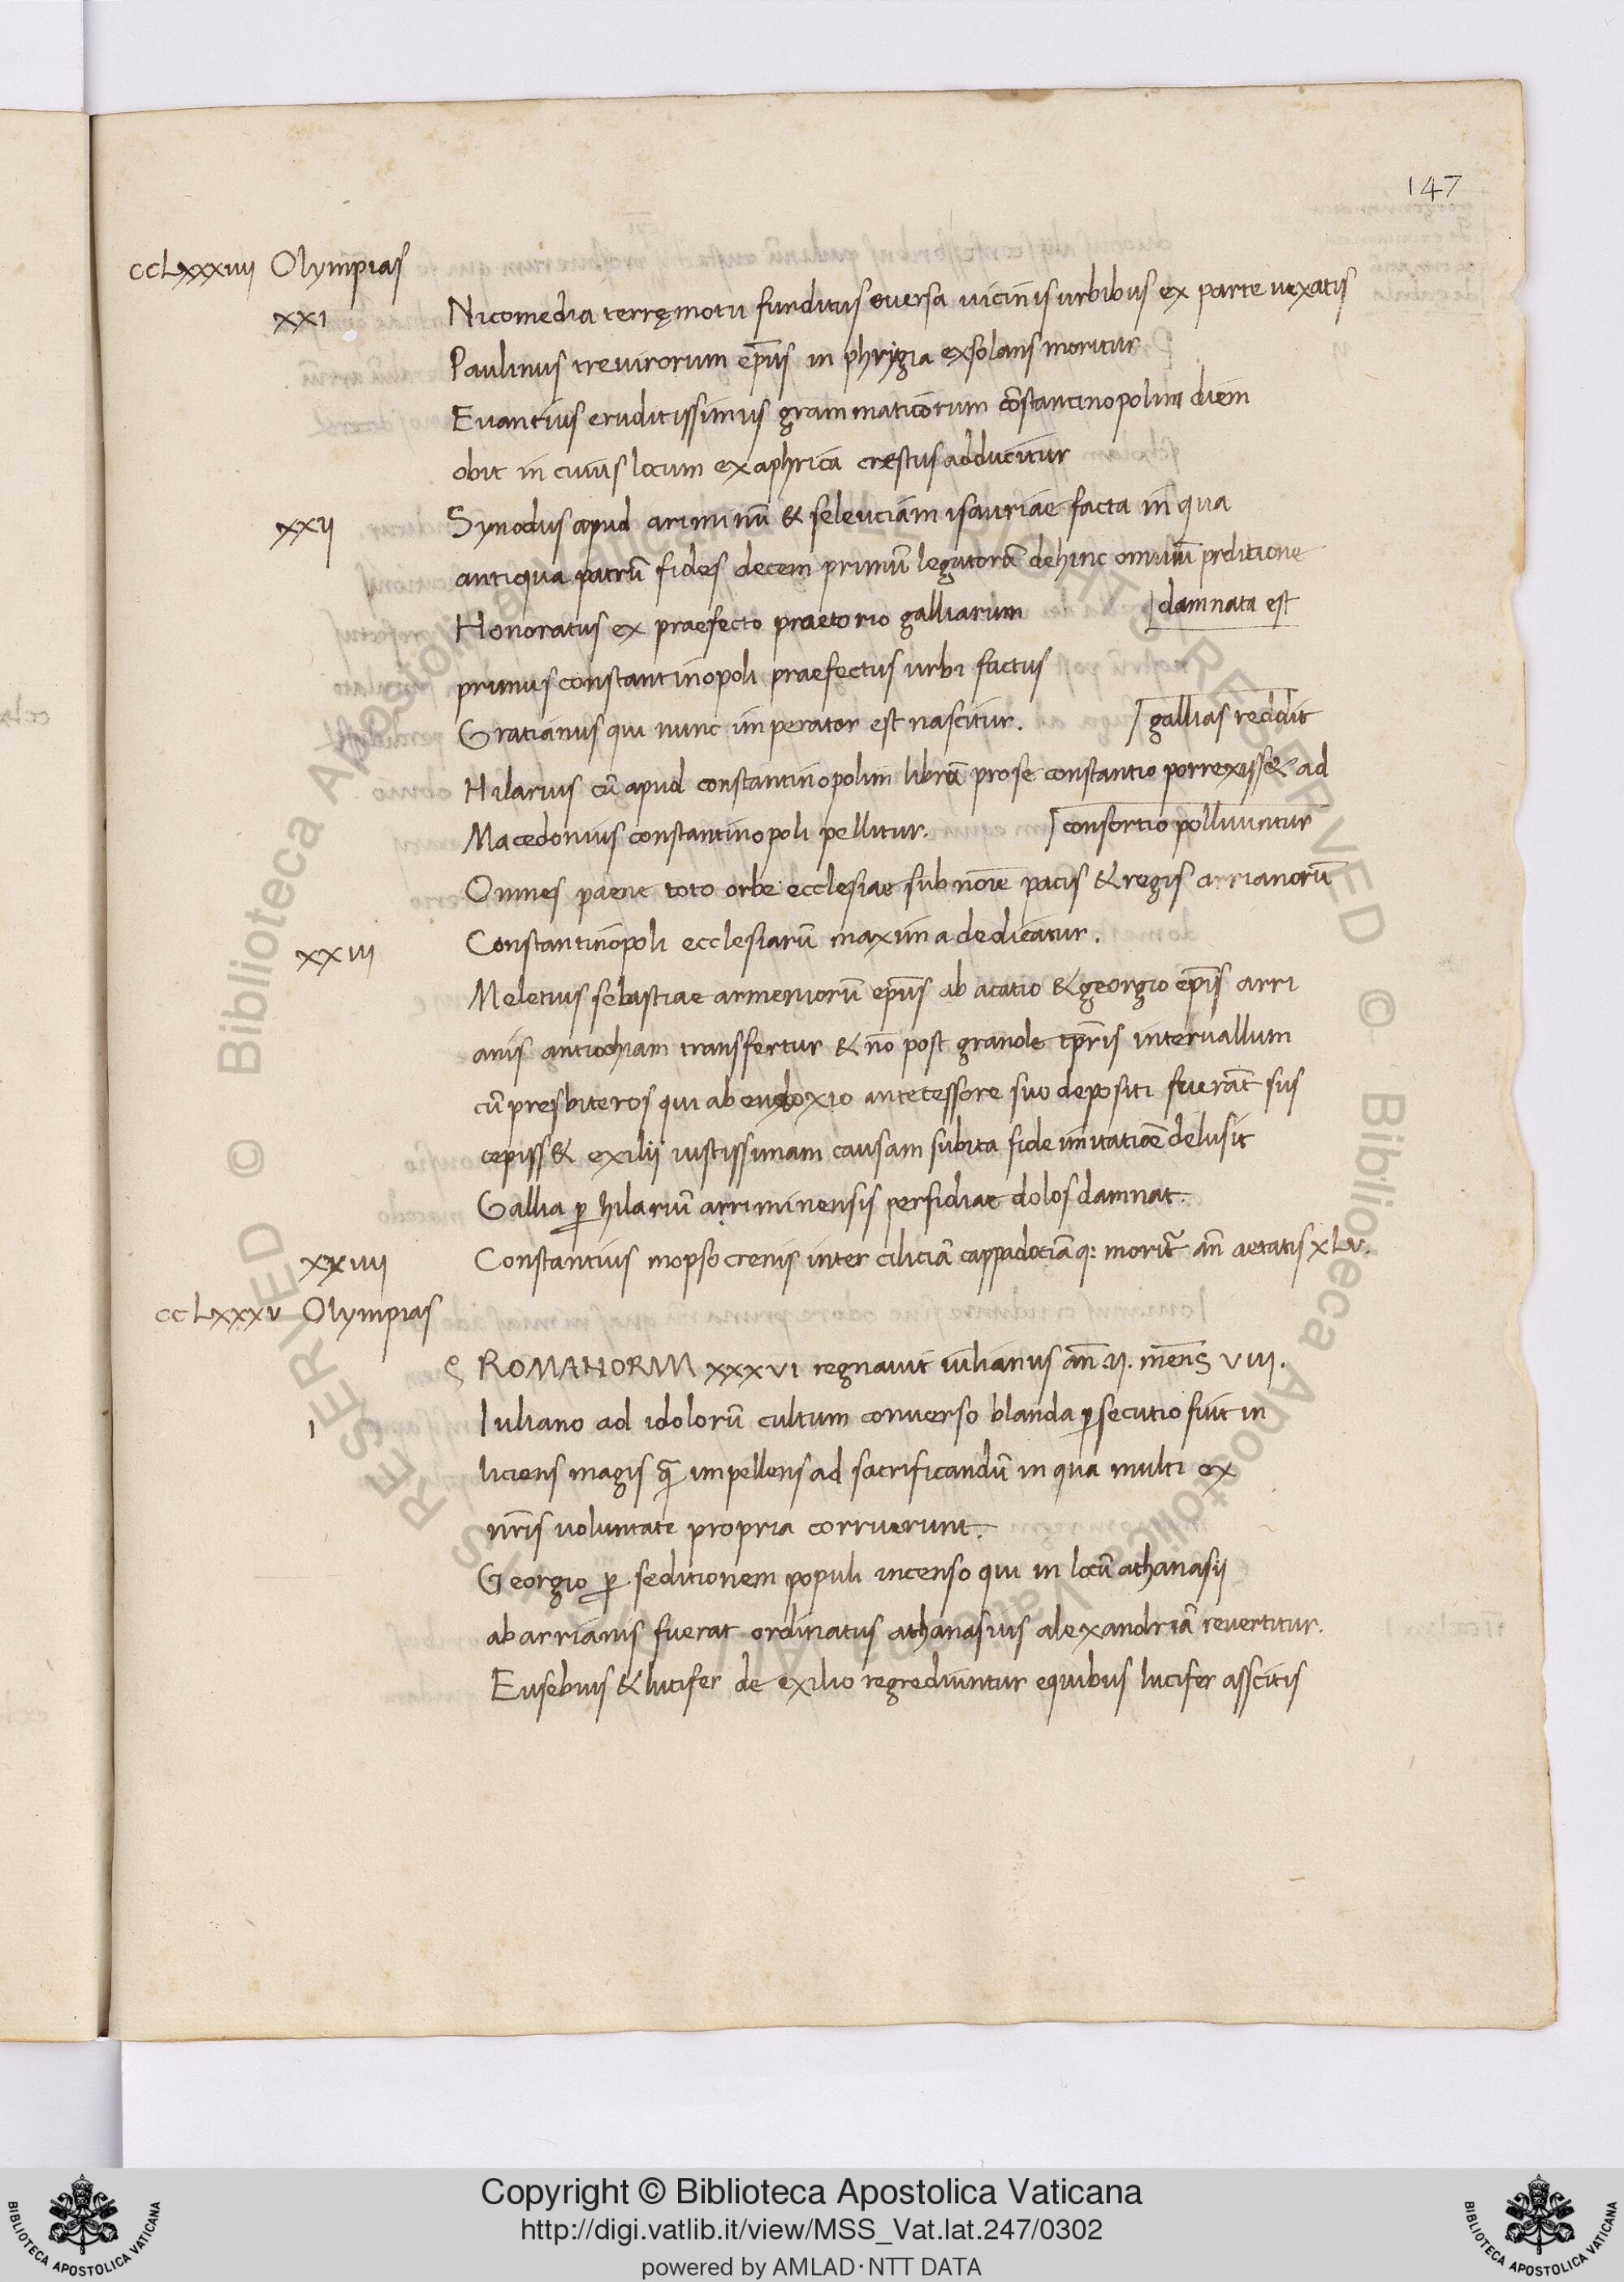 147
ccLxxxiiii Olympias
xxi Nicomedia terręmotu funditus euersa uicinis urbibus ex parte uexatis
Paulinus treuirorum ep̅us in phrigia exsolans moritur
Euantius eruditissimus grammaticorum co̅stantinopolim diem
obit in cuius locum ex aphrica crestus adducitur
xxii Synodus apud ariminu̅ & seleuciam isauriae facta in qua
antiqua patru̅ fides decem primu̅ legatoru̅ dehinc omniu̅ proditione
damnata est
Honoratus ex praefecto praetorio galliarum
primus constantinopoli praefectus urbi factus
Gratianus qui nunc imperator est nascitur.
gallias reddit
Hilarius cu̅ apud constantinopolim libru̅ pro se constantio porrexiss& ad
Macedonius constantinopoli pellitur.
consortio polluuntur
Omnes paene toto orbe ecclesiae sub no̅ie pacis & regis arrianoru̅
xxiii Constantinopoli ecclesiaru̅ maxima dedicatur.
Meletius sebastiae armenioru̅ ep̅us ab acatio & georgio ep̅is arri
anis antiochiam transfertur & no̅ post grande tp̅ris interuallum
cu̅ presbiteros qui ab eudoxio antecessore suo depositi fuera̅t sus
cepiss& exilii iustissimam causam subita fide imitatio̅e delusit
Gallia p̲ hilariu̅ arriminensis perfidiae dolos damnat.
xxiiii Constantius mopsocrenis inter cilicia̅ cappadocia̅q: morit᷑ an̅ aetatis xLv.
ccLxxxv Olympias
ROMANORVM xxxvi regnauit iulianus an̅ .ii. me̅ns viii.
i Iuliano ad idoloru̅ cultum conuerso blanda p̲secutio fuit in
liciens magis qua̅ impellens ad sacrificandu̅ in qua multi ex
nr̅is uoluntate propria corruerunt.
Georgio p̲ seditionem populi incenso qui in locu̅ athanasii
ab arrianis fuerat ordinatus athanasius alexandria̅ reuertitur.
Eusebius & lucifer de exilio regrediuntur equibus lucifer asscitis
Copyright © Biblioteca Apostolica Vaticana
http://digi.vatlib.it/view/MSS_Vat.lat.247/0302
powered by AMLAD·NTT DATA
BIBLIOTECA APOSTOLICA VATICANA
BIBLIOTECA APOSTOLICA VATICANA
© Biblioteca Apostolica Vaticana ALL RIGHTS RESERVED © Biblioteca Apostolica Vaticana ALL RIGHTS RESERVED